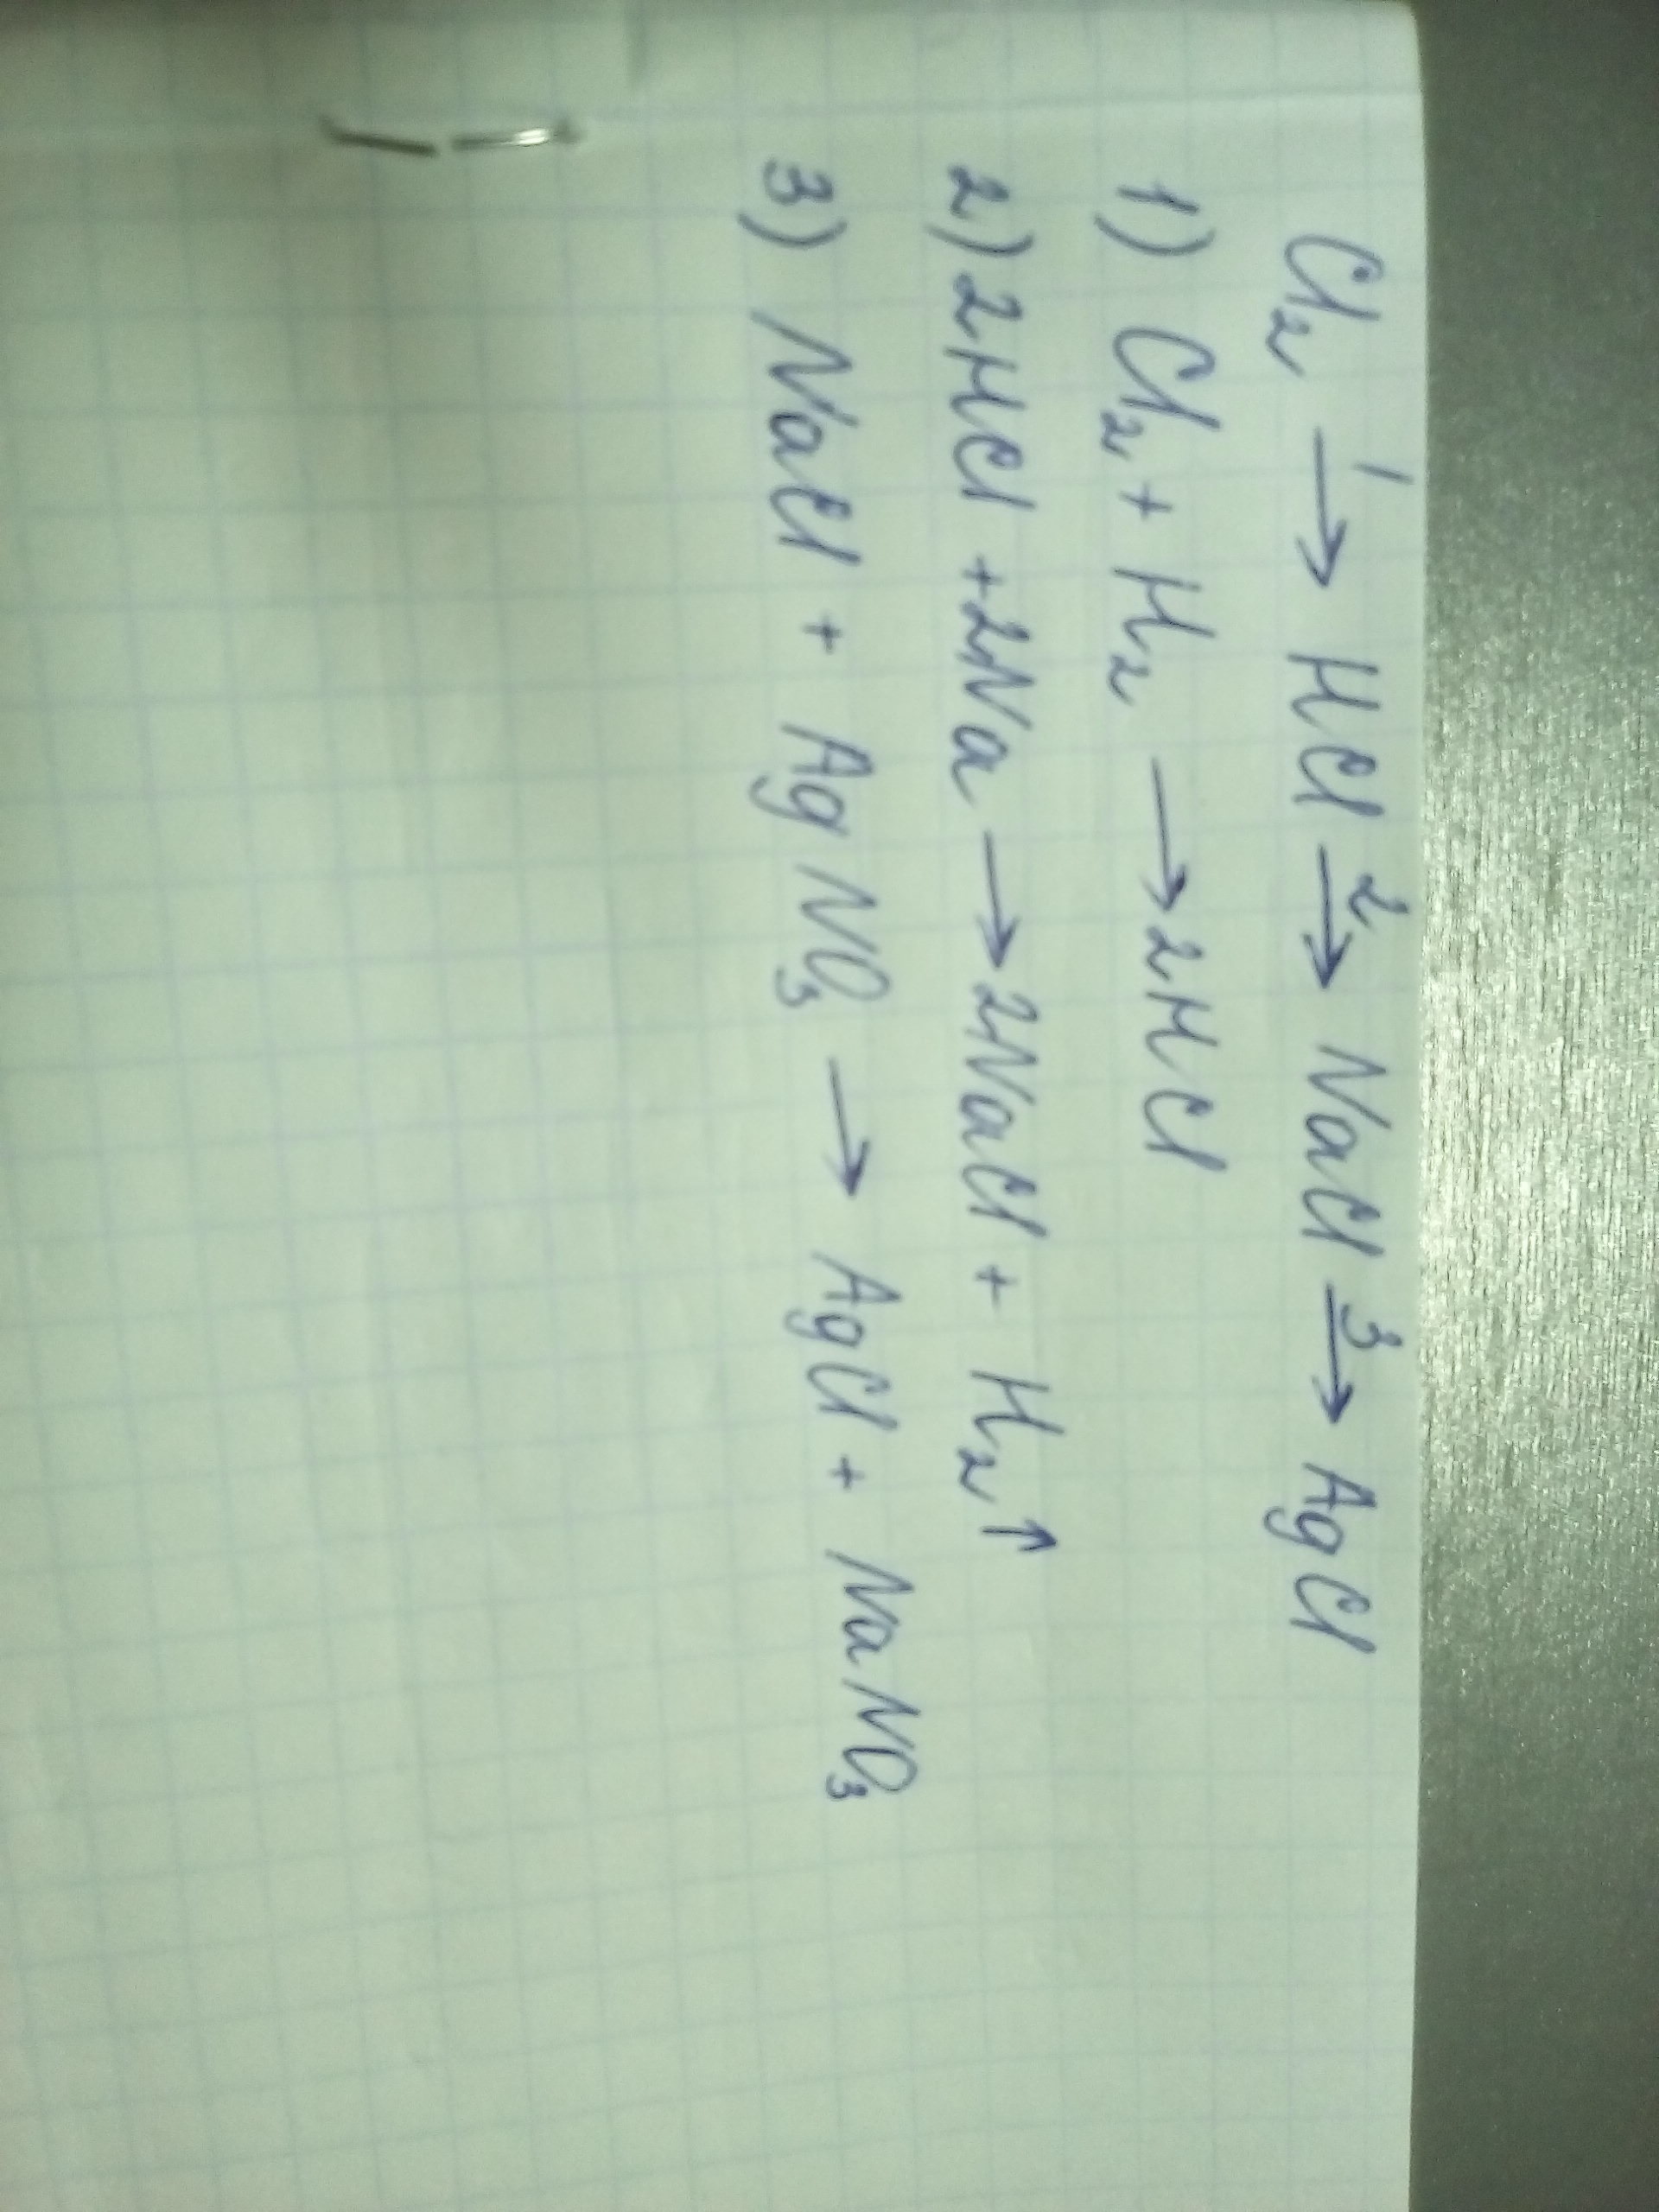 Cl₂ →¹ HCl →² NaCl →³ AgCl
1) Cl₂ + H₂ → 2HCl
2) 2HCl + 2Na → 2NaCl + H₂↑
3) NaCl + AgNO₃ → AgCl + NaNO₃